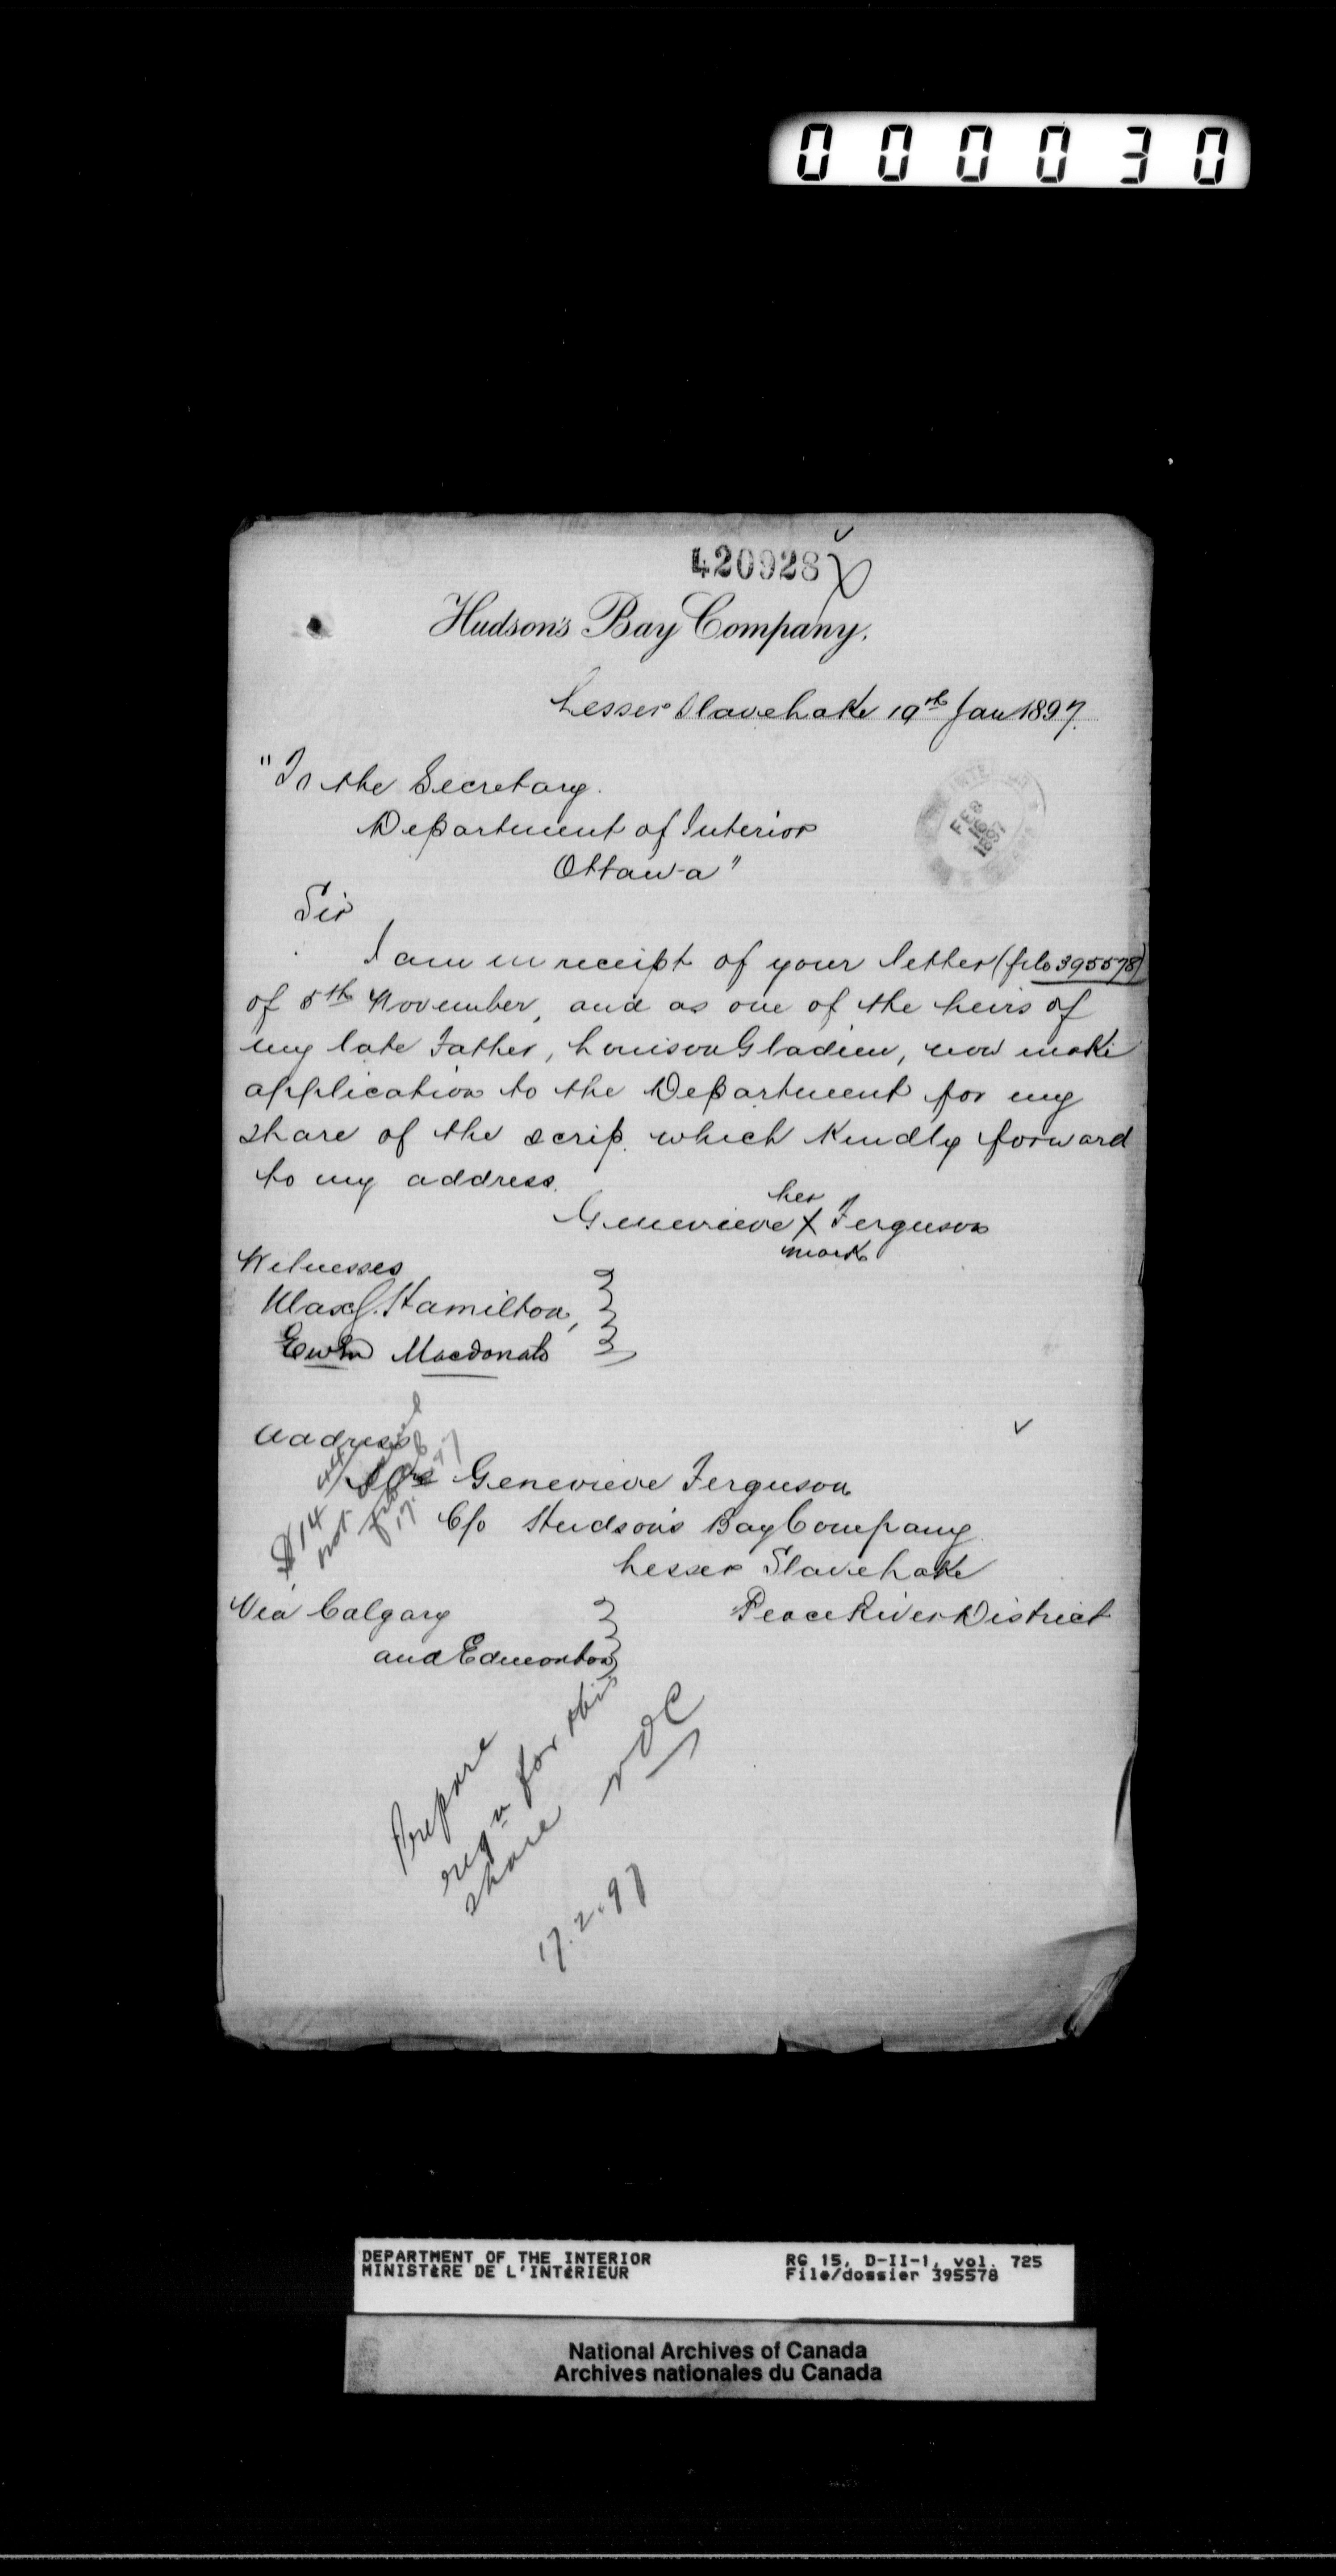 000030
420928
Hudson's Bay Company.
Lesser Slave Lake 19th Jan 1897.
"To the Secretary.
Department of Interior
Ottawa"
FEB
16
1897
Sir
I am in receipt of your letter (file 395578)
of 5th November, and as one of the heirs of
my late Father, Louison Gladieu, now make
application to the Department for my
share of the scrip. which kindly forward
to my address.
her
Genevieve X Ferguson
mark
Witnesses
Hamilton,
Ewen Macdonald
Address
Mrs Genevieve Ferguson
C/o Hudson's Bay Company
Lesser Slave Lake
Via Calgary
Peace River District
and Edmonton
$14 44
not
17. 97
Prepare
reqn for this
share
17.2.97
DEPARTMENT OF THE INTERIOR
MINISTÈRE DE L'INTÉRIEUR
RG 15, D-II-1, vol. 725
File/dossier 395578
National Archives of Canada
Archives nationales du Canada